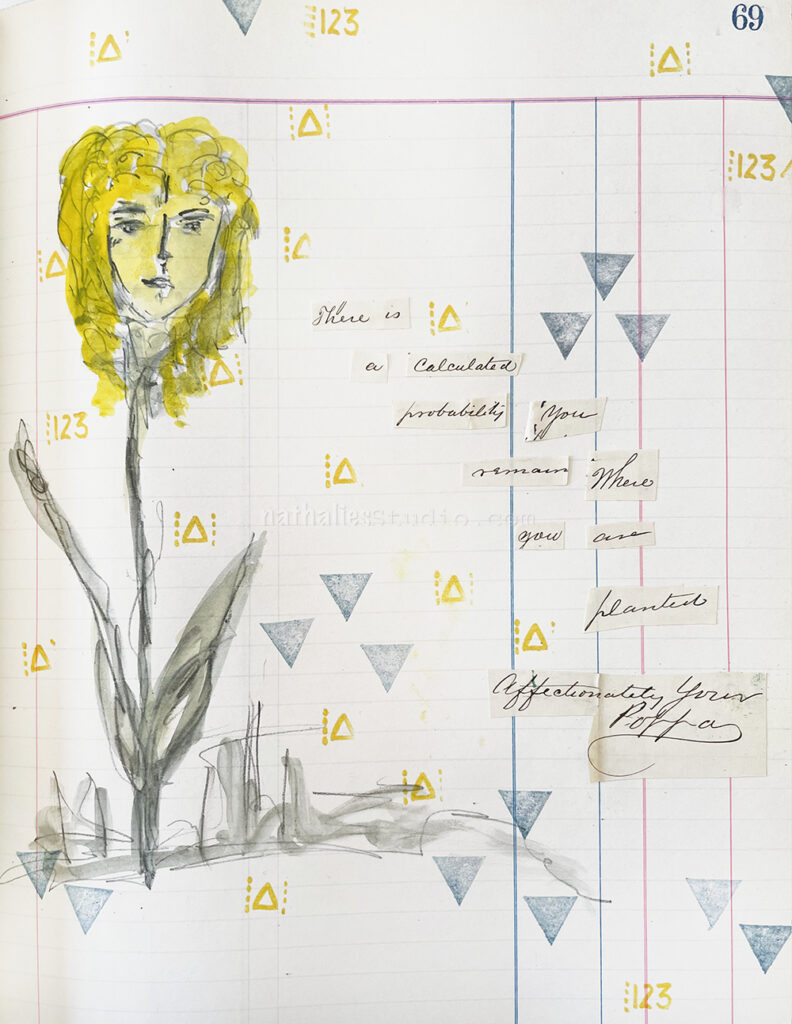 69
123
123
There is
a calculated
probability You
remain Where
123
nathaliesstudio.com
you are
planted
Affectionately Your
Poppa
123